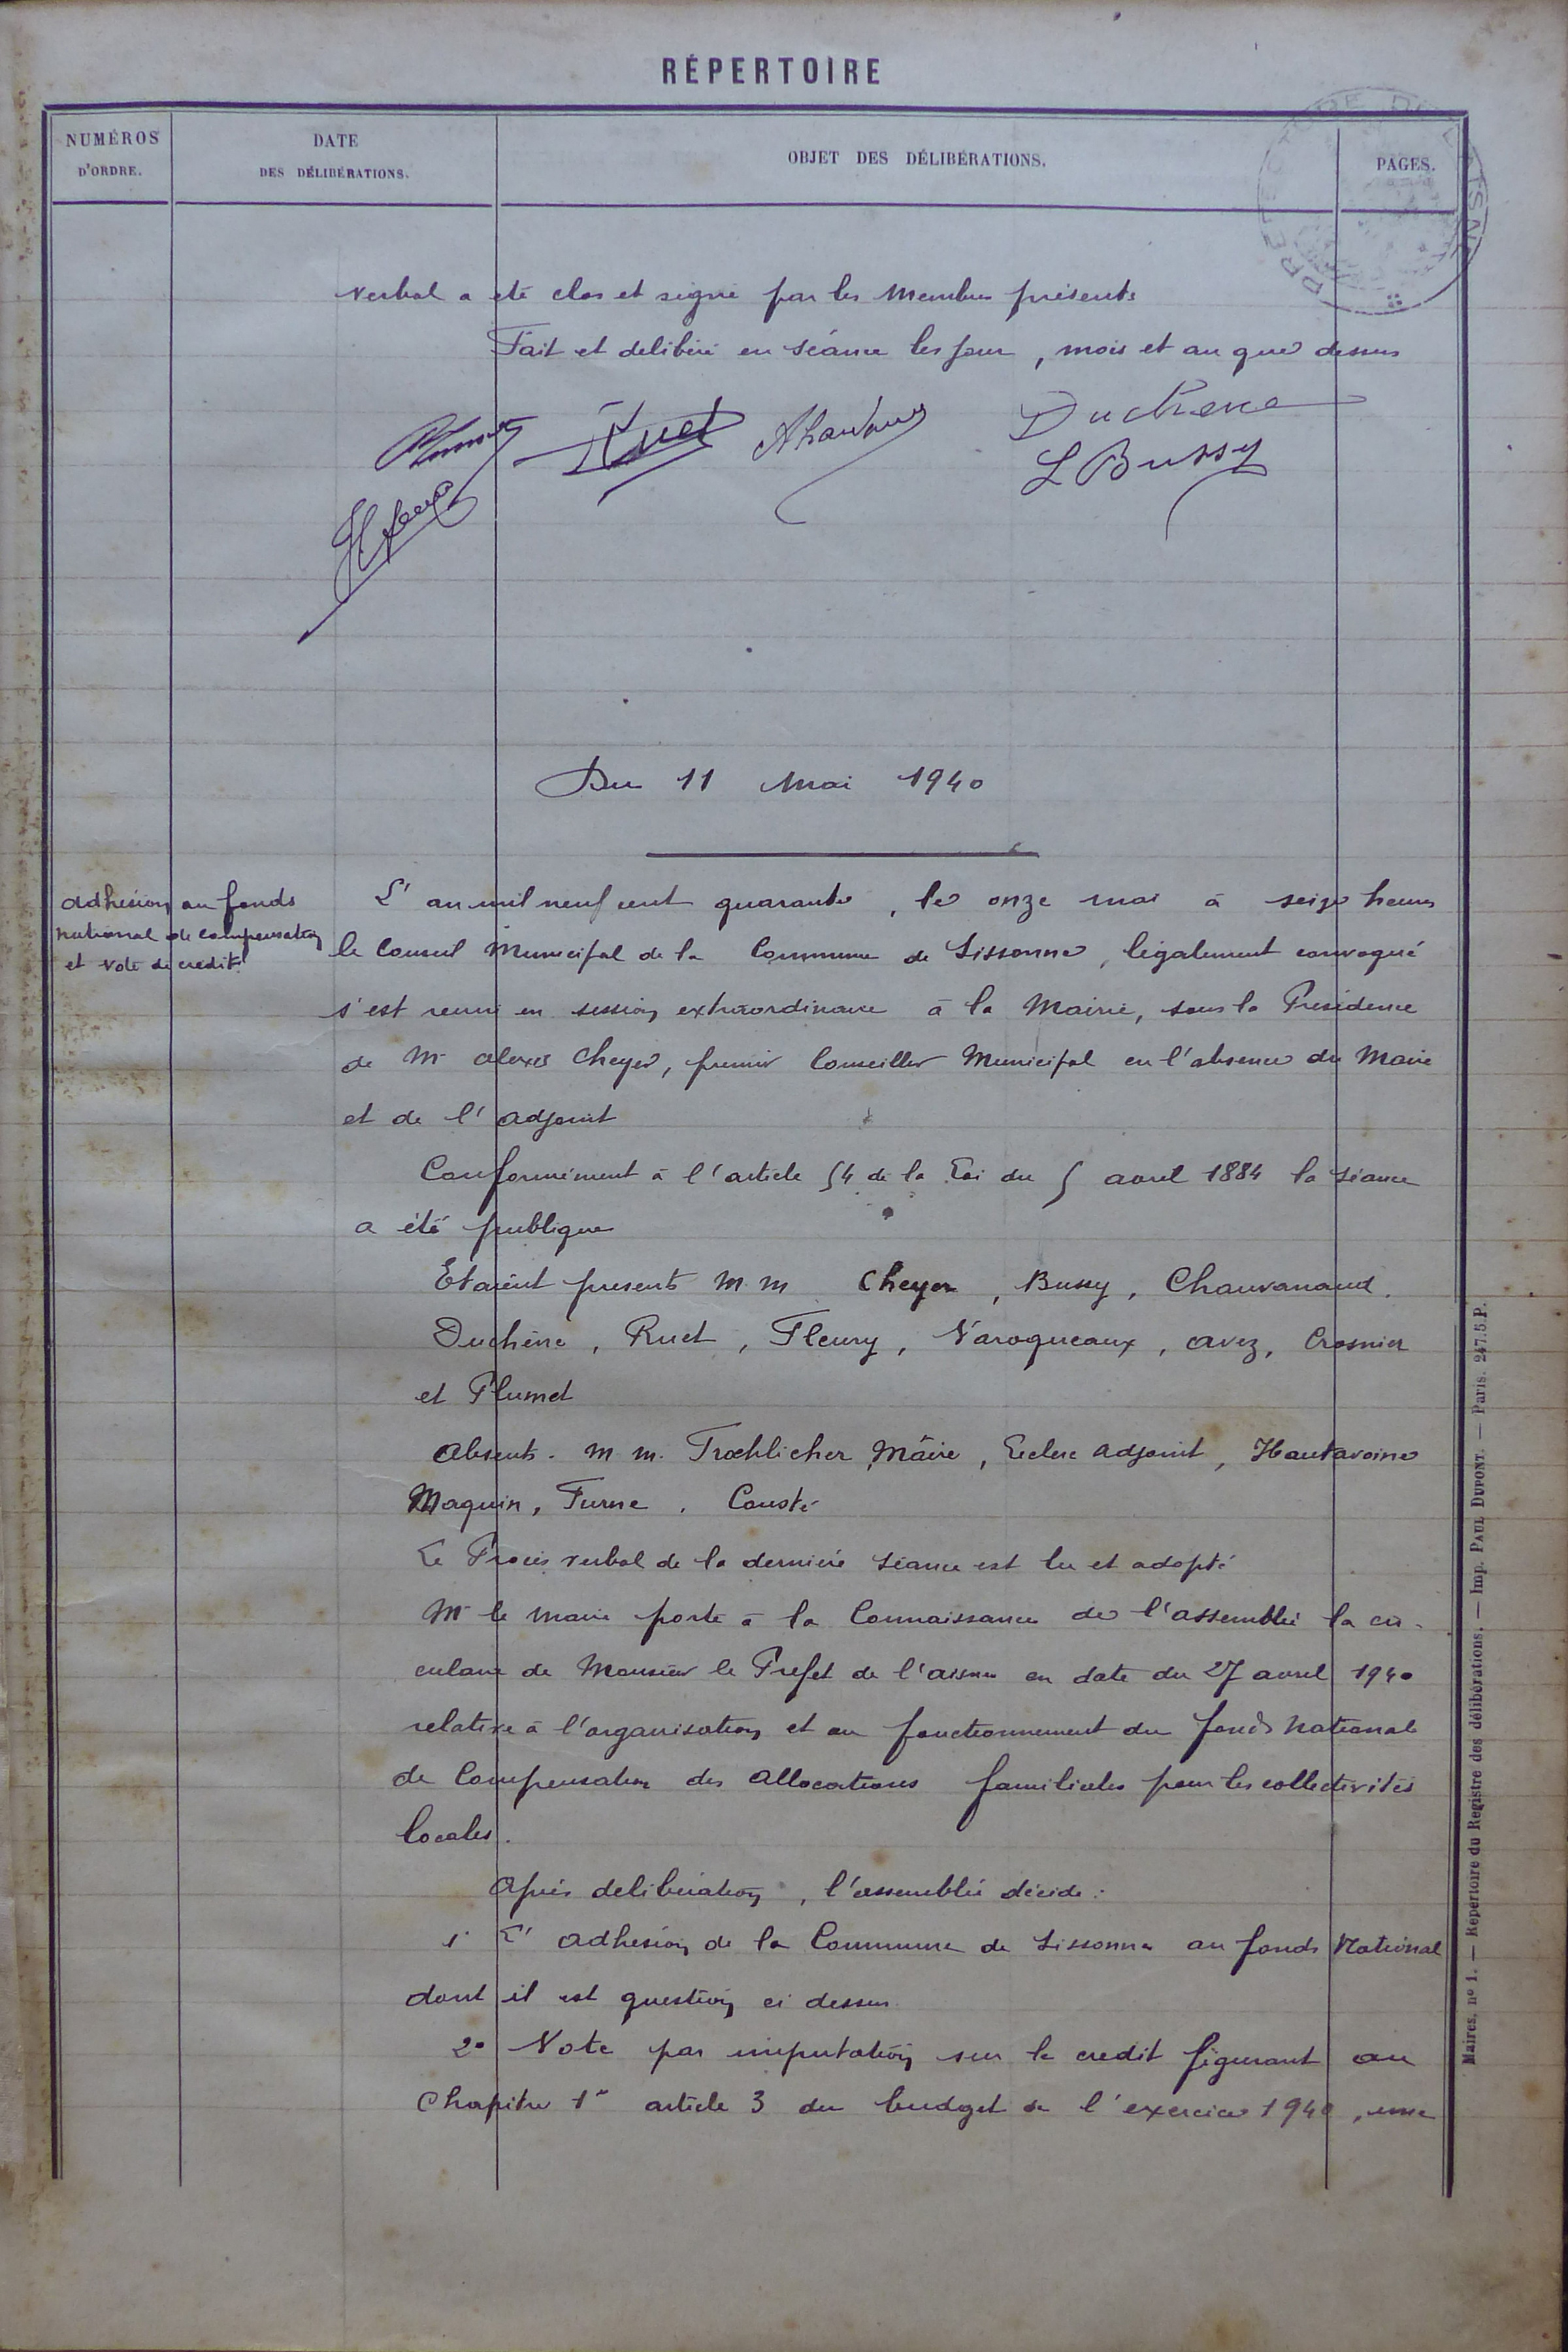 RÉPERTOIRE
NUMÉROS
D'ORDRE.
DATE
DES DÉLIBÉRATIONS.
OBJET DES DÉLIBÉRATIONS.
PAGES.
verbal a été clos et signé par les Membres présents
Fait et délibéré en séance les jour, mois et an que dessus
Ruet
Duchene
L Bussy
Du 11 Mai 1940
adhésion au fonds
national de compensation
et vote de crédit
L'an mil neuf cent quarante, le onze mai à seize heures
le Conseil Municipal de la Commune de Sissonne, légalement convoqué
s'est reuni en session extraordinaire à la Mairie, sous la Présidence
de Mr alexis Cheyer, premier Conseiller Municipal en l'absence du Maire
et de l'adjoint
Conformément à l'article 54 de la Loi du 5 avril 1884 la séance
a été publique
Etaient presents M.M Cheyer, Bussy, Chauvanaud.
Duchêne, Ruet, Fleury, Varoqueaux, avez, Crosnier
et Plumet
absents. M.M. Froehlicher, Maire, Leclerc adjoint, Hautavoine
Maquin, Furne, Cousté
Le Procès verbal de la dernière séance est lu et adopté
Mr le Maire porte à la Connaissance de l'assemblée la cir-
culaire de Monsieur le Prefet de l'aisne en date du 27 avril 1940
relative à l'organisation et au fonctionnement du fonds National
de Compensation des allocations familiales pour les collectivités
locales.
après deliberation, l'assemblée décide:
1° L'adhésion de la Commune de Sissonne au fonds National
dont il est question ci dessus
2° Vote par imputation sur le crédit figurant au
Chapitre 1er article 3 du budget de l'exercice 1940, une
Maires, nº 1. — Répertoire du Registre des délibérations. — Imp. PAUL DUPONT. — Paris. 247.5.P.